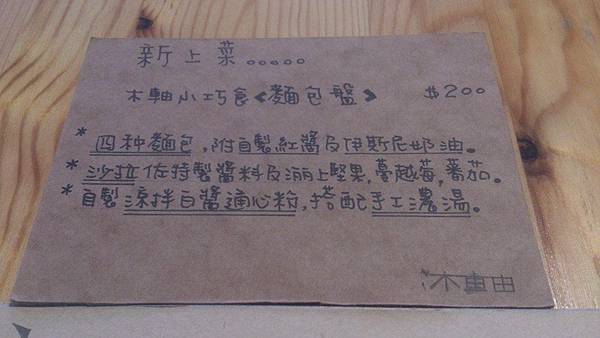 新上菜.....
木軸小巧食《麵包盤》 $200
*四种麵包,附自製紅醬及伊斯尼奶油。
*沙拉佐特製醬料及洒上堅果,蔓越莓,蕃茄。
*自製涼拌白醬通心粉,搭配手工濃湯。